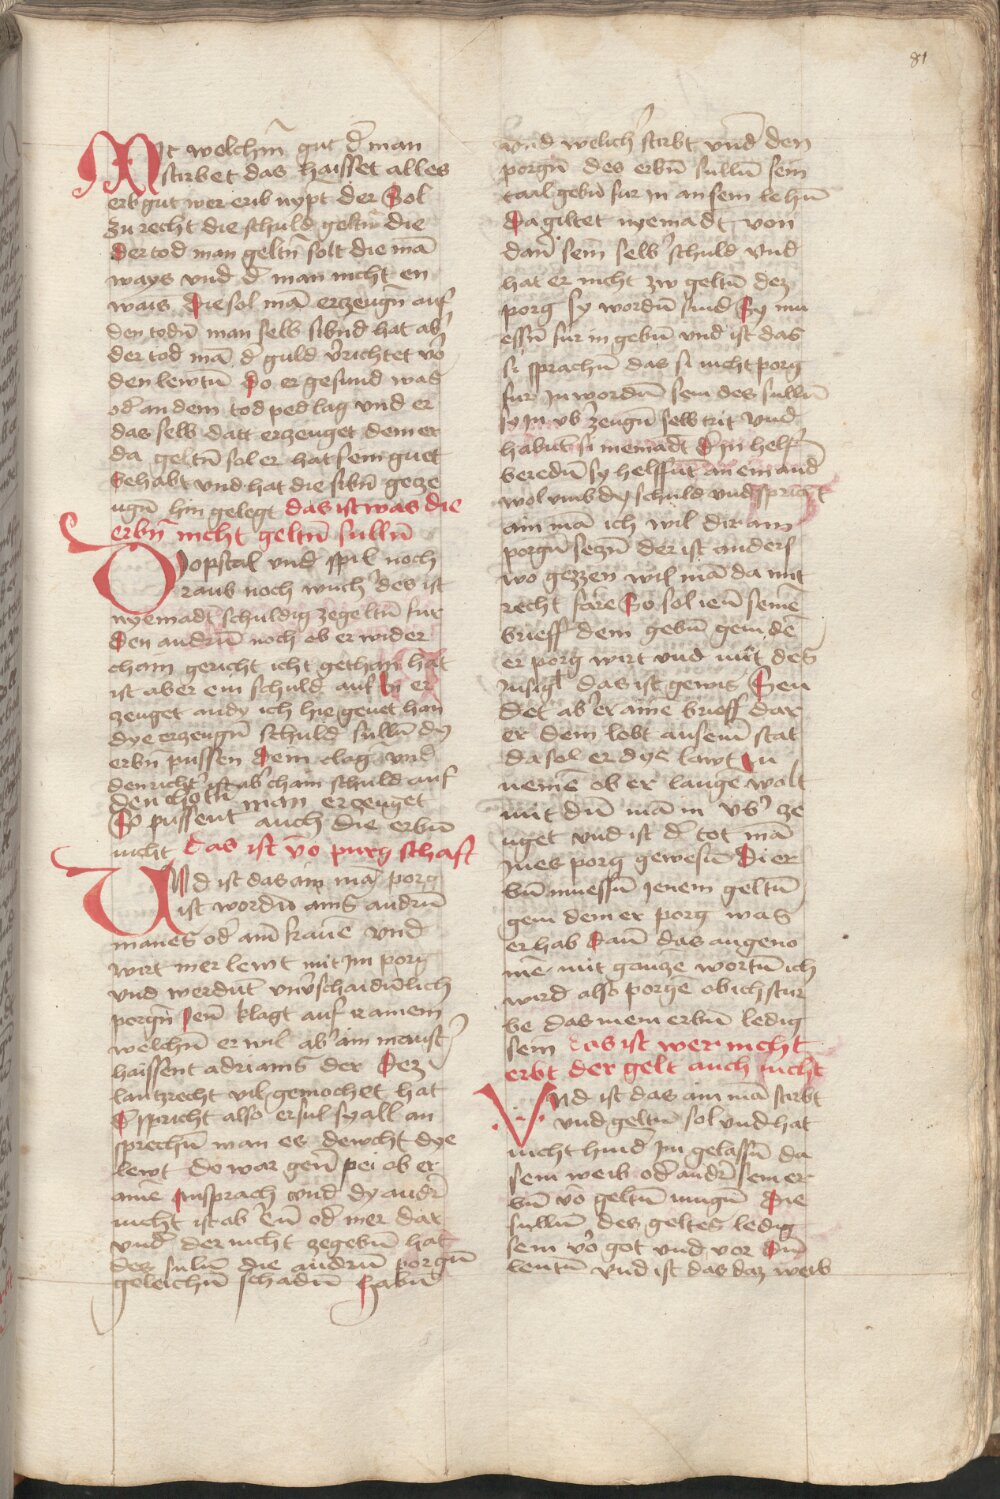 81
Mit welchm̄ gut d' man
stirbet das haisset alles
erbgut wer erib nypt der Sol
zu recht die schuld geltn̄ die
Der tod man geltn̄ solt die mā
ways vnd d' man nicht en
wais Die sol mā erczeugn̄ auf
den todn̄ man selb sibnd hat ab'
der tod mā d' guld v'richtet vō
den lewtn̄ Do er gesund was
od' an dem tod ped lag vnd er
das selb datt erzeuget dem er
da geltn̄ sol er hat sein guet
behabt vnd hat die sibn̄ gecze
ugn̄ hin gelegt das ist was die
erbn̄ nicht geltn̄ sulln̄
Dopstal vnd spil noch
raub noch wuch' des ist
nyemadt schuldig zegeltn̄ fur
Den andrn̄ noch ob er wider
cham gericht icht gethan hat
ist aber ein schuld auf In er
zeuget an dy ich hie genet han
dye erzeugn̄ schuld sulln̄ dy
erbn̄ pussen Dem clag' vnd
dem richt' ist ab' cham schuld auf
den chotn̄ man erzeuget
So pussent auch die erbn̄
nicht Das ist vō purgschaft
Vnd ist das ain mā porg
ist wordn̄ ains andrn̄
manes od' ain̄ frawē vnd
wirt mer lewt mit Im porg
vnd werdut vnu'schaidnlich
porgn̄ Jen̄ klagt auf ir ainem
welchn̄ er wil ab' ain meinst'
haissent adrians der Dez
lantzrecht vil gemochet hat
D' spricht also er sul sy all an
sprechn̄ man es dewcht dye
lewt do war gen̄ pei ob er
ainē Ansprach vnd dy andr'
nicht ist ab' ein̄ od' mer dar
vnd' der nicht zegebn̄ hat
des suln̄ die andrn̄ porgn̄
geleichn̄ schadn̄ Habn̄
vnd welich' stirbt vnd' den
porgn̄ des erbn̄ sulln̄ sein
taal gebn̄ fur In an sem lehn̄
Da giltet nyemadt von
dan̄ sein selb' schuld vnd
hat er nicht zw geltn̄ dez
porg sy wordn̄ sind Sy mu
essn̄ fur in gebn̄ vnd ist das
si sprachn̄ das si nicht porg
fur In wordn̄ sein des sulln̄
sy In vb' zeugn̄ selb trit vnd
habnt si niemadt D' In helf'
beredn̄ sy helffūt an ein and'
wol vmb dy schuld vnd spricht
ain mā ich wil dir ain
porgn̄ seczn̄ der ist anders
wo gezzen wil mā da mit
recht fare So sol ien̄ seinē
brieff dem gebn̄ gein dē
er porg wirt vnd mit des
Insigl das ist gewis Sen
det ab' er ainē brieff dar
er dem lebt an sein̄ stat
da sol er dye lawt zu
nemē ob er lauge wolt
mit dn̄ mā in vb' ze
uget vnd ist d' tot mā
Ines porg gewesn̄ Di er
bn̄ muessn̄ Jenem geltn̄
gein dem er porg was
er hab Dan̄ das angeno
mē mit gancze wortn̄ ich
wird also porge ob ich stur
be das mein erbn̄ ledig
sein Das ist wer nicht
erbt der gelt auch nicht
Vnd ist das ain mā stirbt
vnd geltn̄ sol vnd hat
nicht hind' Im gelassn̄ da
sein weib od' andr' sein er
bn̄ vō geltn̄ mugn̄ Die
sulln̄ des geltes ledig
sein vō got vnd vor Dn̄
leutn̄ vnd ist das daz weib